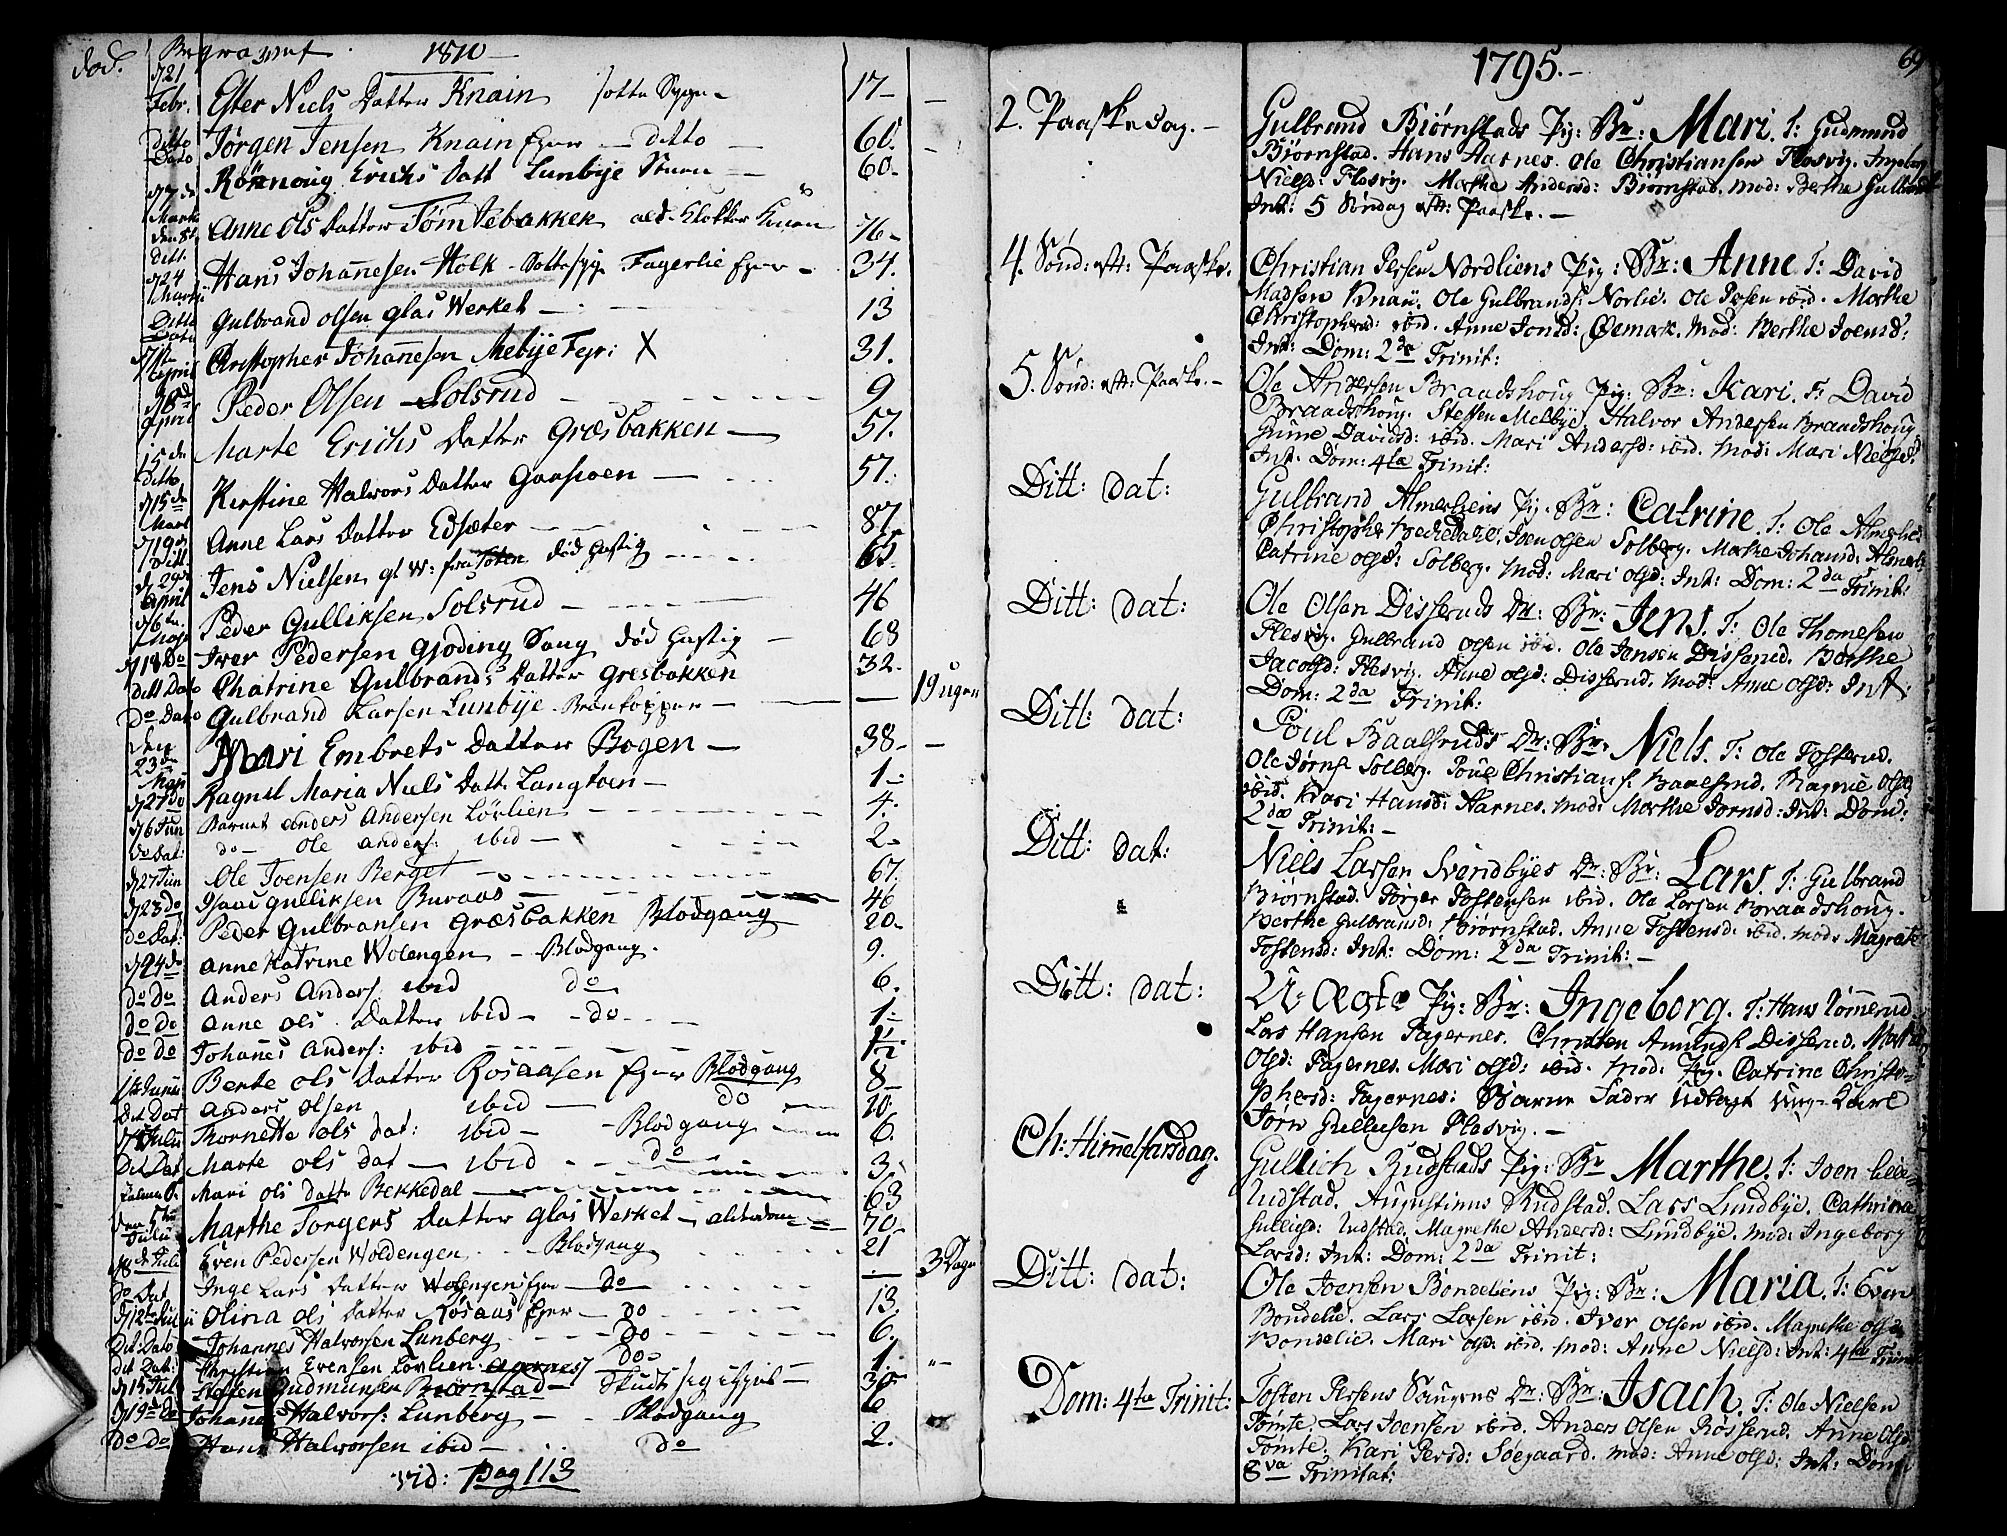 død. Begravent 1810
d 21 Febr. Ester Niels Datter Knain Sotte Syge 17 –
Ditto Jørgen Jensen Knain Ejer – ditto – 60.
Dato Rönnoug Erichs Datt Lunbye 60.
Anne Ols Datter Tømtebakken 76
Hans Johannesen Holk – Sottesyge Fagerlie Ejer – 34.
Ditto Gulbrand Olsen Glas Werket – 13
Christopher Johannesen Mebye Fejr: X 31.
April Peder Olsen Solsrud – 9
15 de ditto Marte Erichs Datter Græsbakken – 57.
d 15 de Kerstine Halvors Datter Gaasioen – 57.
d 19 Ditt. Anne Lars Datter Edsæter – 87
d 29 April Jens Nielsen gl W: fra Toten død hastig 65
d 6 Peder Gulliksen Solsrud – 46
d 18 Do Iver Pedersen Gjøding Saug død hastig – 68
ditt Dato Chatrine Gulbrands Datter Gresbakken 32.
do Dato Gulbrand Larsen Lunbye – 19 ugen
den 23 de Maji Mari Embrets Datter Bogen – 38 –
d 27 do Ragnil Maria Niels Datt. Langtoen – 1
d 6 Jun Barnet Anders Andersen Løvlien 4.
do Dat: do – Ole Anders: ibid – 2
d 27 Jun Ole Joensen Berget – 67.
d 23 do Isaac Gulliksen Buraas – 46
do Dat: Peder Gulbransen Græsbakken Blodgang 20
d 24 do Anne Katrine Wolengen – Blodgang. 9.
do do Anders Anders. ibid do 6.
do do Anne Ols Datter ibid – do 1
do do Johanes Anders: ibid – 1½
Berte Ols Datter Rosaasen Ejer Blodgang 8
Dit Dat Anders Olsen ibid – do 10
Thornette Ols Dat: ibid – Blodgang 6.
Dit Dat Marte Ols Dat – ibid do 3
Mari Ols Datte Bekkedal 63
den 5te Julii Marthe Torgers Datter Glas Werket – 70
d 8 de Juli Even Pedersen Woldengen – Blodgang 21
do Dat Inge Lars Datter Wolengen Ejer – do – 3 Dage
d 12te Julii Olina Ols Datter Røsaas Ejer – do 13
Dit Dato Johannes Halvorsen Lunberg – do 6.
dit Dat: Christian Evensen Løvlien do 1.
d 15 Juli Steffen Gudmunsen Biørnstad – Skudt sig 30
d 19 de Johanes Halvors: Lunberg – Blodgang 6
do do Hans Halvorsen ibid – do 2.
vid: Pag 113
1795. – 69
2. Paaskedag. –
Gulbrand Biørnstads Pig: Br: Mari. T: Gudmund
Biørnstad. Hans Aarnes. Ole Christiansen Flesvig. Ingeborg
Nielsd: Flesvig. Marthe Andersd: Biørnstad. Mod: Berthe Gulbrandsd
Int: 5 Søndag eft: Paaske. –
4. Sønd: eft: Paaske.
Christian Persen Nordliens Pig: Br: Anne T: David
Madsen Knain. Ole Gulbrands: Norlie. Ole Persen ibid. Marthe
Christophersd: ibid. Anne Jonsd: Øemark. Mod: Berthe Joensd:
Int: Dom: 2da Trinit:
5. Sønd: eft: Paaske. –
Ole Andersen Braadshoug Pig: Br: Kari. T: David
Braadshoug. Steffen Melbye, Halvor Andersen Braadshoug
Gune Davidsd: ibid. Mari Andersd: ibid. Mod: Mari Nielsd:
Int: Dom: 4te Trinit:
Ditt: dat:
Gulbrand Almerliens Pig: Br: Catrine T: Ole Almerlie
Christopher Bechedalie. Joen Olsen Solberg. Marthe Johansd: Almerlie
Catrine Olsd: Solberg. Mod: Mari Olsd: Int: Dom: 2da Trinit:
Ditt: dat:
Ole Olsen Disseruds Dr: Br: Jens. T: Ole Thomesen
Flesvig. Gulbrand Olsen ibid. Ole Jensen Disserud. Berthe
Jacobsd: Flesvig. Anne Olsd: Disserud. Mod: Anne Olsd: Int:
Dom: 2da Trinit:
Ditt: dat:
Poul Baalsruds Dr: Br: Niels. T: Ole Tosterud.
Ole Jørns: Solberg. Poul Christians: Baalsrud. Ragnie Olsd
ibid. Kari Hansd: Aarnes. Mod: Marthe Jornsd: Int: Dom:
2da Trinit: –
Ditt: dat:
Niels Larsen Svendbyes Dr: Br: Lars. T: Gulbrand
Biørnstad. Torger Tostensen ibid. Ole Larsen Braadshoug.
Berthe Gulbrandsd: Biørnstad. Anne Tostensd: ibid. Mod: Magrete
Tostensd: Int: Dom: 2da Trinit: –
Ditt: dat:
U: Ægte Pig: Br: Ingeborg. T: Hans Tømmerud
Lars Hansen Fagernes. Christen Amunds: Disserud. Marthe
Olsd: Fagernes. Mari Olsd: ibid. Mod: Pig. Catrine Christo-
phersd: Fagernes: Barne Fader Udlagt Ung-Karl
Jørn Gullichsen Flesvig. –
Ch: Himmelfarsdag.
Gullich Rudstads Pig: Br Marthe. T: Joen Lille
Rudstad. Augustinus Rudstad. Lars Lundbye. Cathrina
Gulligsd: Rudstad. Magrethe Andersd: Lundbye. Mod: Ingeborg
Larsd: Int: Dom: 2da Trinit:
Ditt: dat:
Ole Joensen Bondeliens Pig: Br: Maria. T: Even
Bondelie. Lars Larsen ibid. Iver Olsen ibid. Magrethe Olsd
Bondelie. Mari Olsd: ibid. Mod: Anne Nielsd: Int: 4te Trinit
Dom: 4te Trinit:
Tosten Persens Saugens Dr: Br: Isach. T: Ole Nielsen
Tømte. Lars Joensen ibid. Anders Olsen Røsserud. Anne Olsd
Tømte. Kari Persd: Søegaard. Mod: Anne Olsd: Int: Dom:
8va Trinitat: